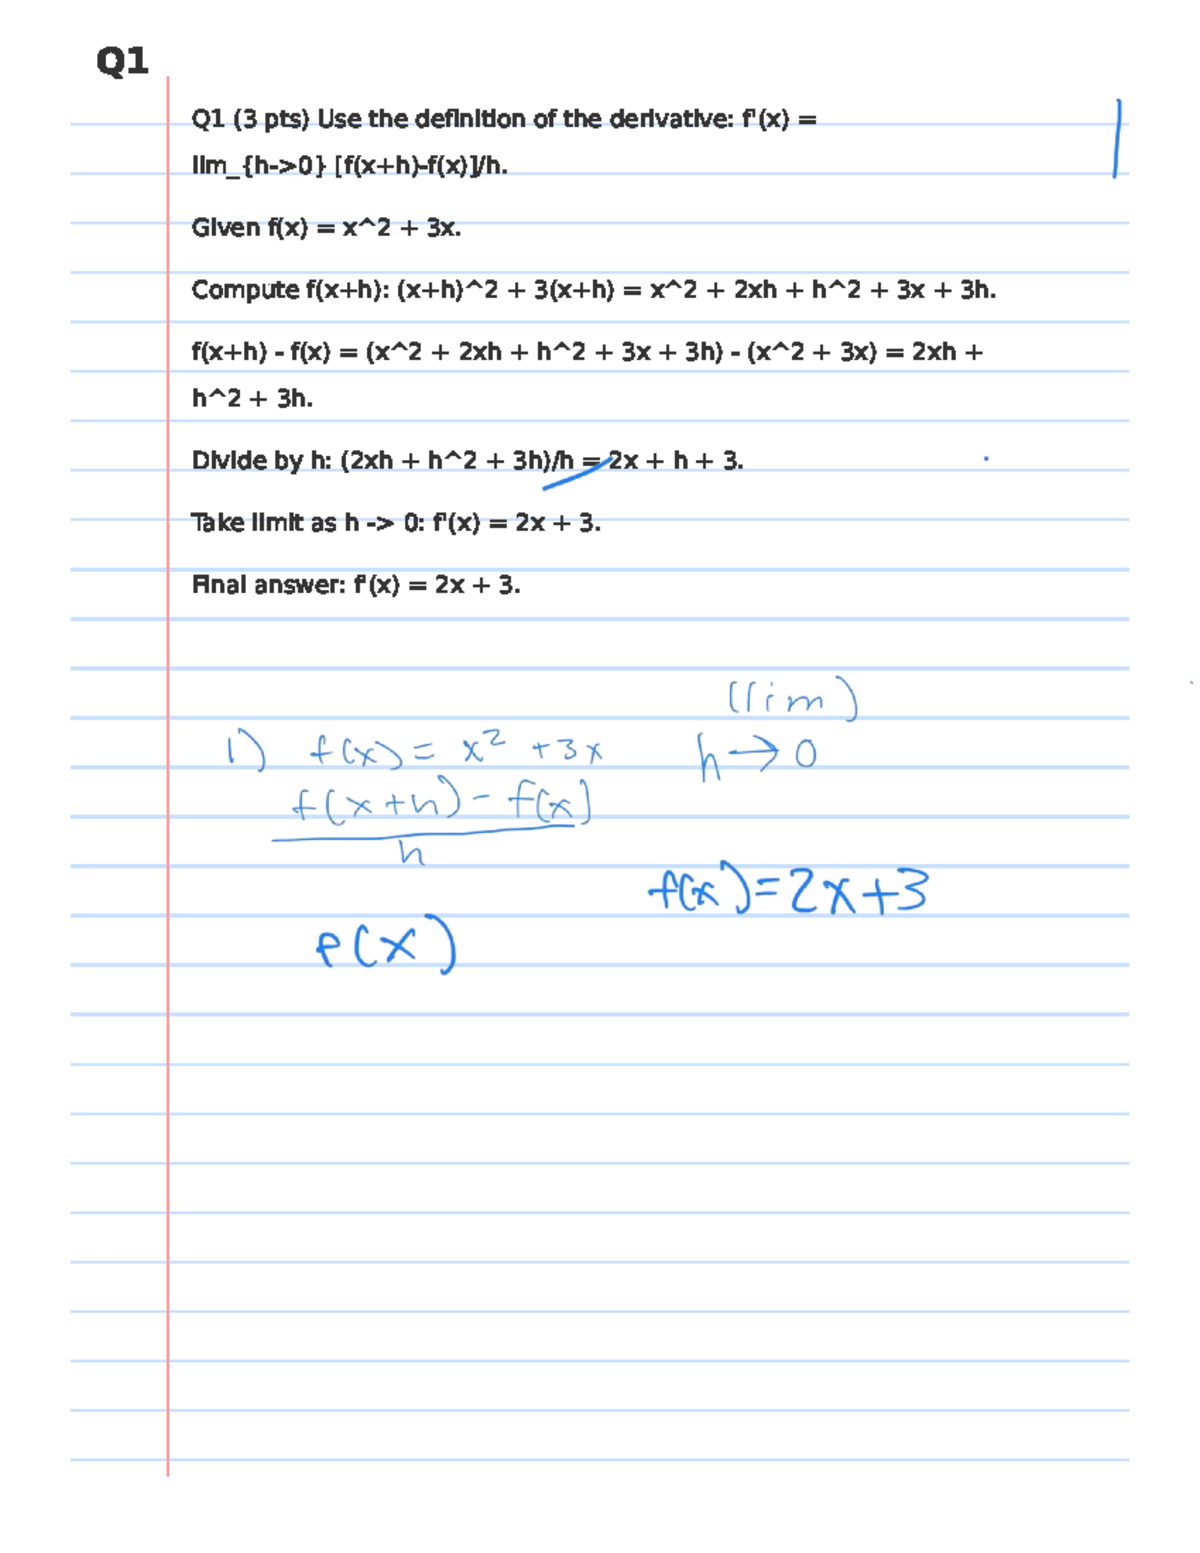 Q1
Q1 (3 pts) Use the definition of the derivative: f'(x) =
lim_{h->0} [f(x+h)-f(x)]/h.
Given f(x) = x^2 + 3x.
Compute f(x+h): (x+h)^2 + 3(x+h) = x^2 + 2xh + h^2 + 3x + 3h.
f(x+h) - f(x) = (x^2 + 2xh + h^2 + 3x + 3h) - (x^2 + 3x) = 2xh +
h^2 + 3h.
Divide by h: (2xh + h^2 + 3h)/h = 2x + h + 3.
Take limit as h -> 0: f'(x) = 2x + 3.
Final answer: f'(x) = 2x + 3.
(lim)
1) f(x) = x² + 3x h → 0
f(x+h) - f(x)
h
f(x) = 2x+3
P(x)